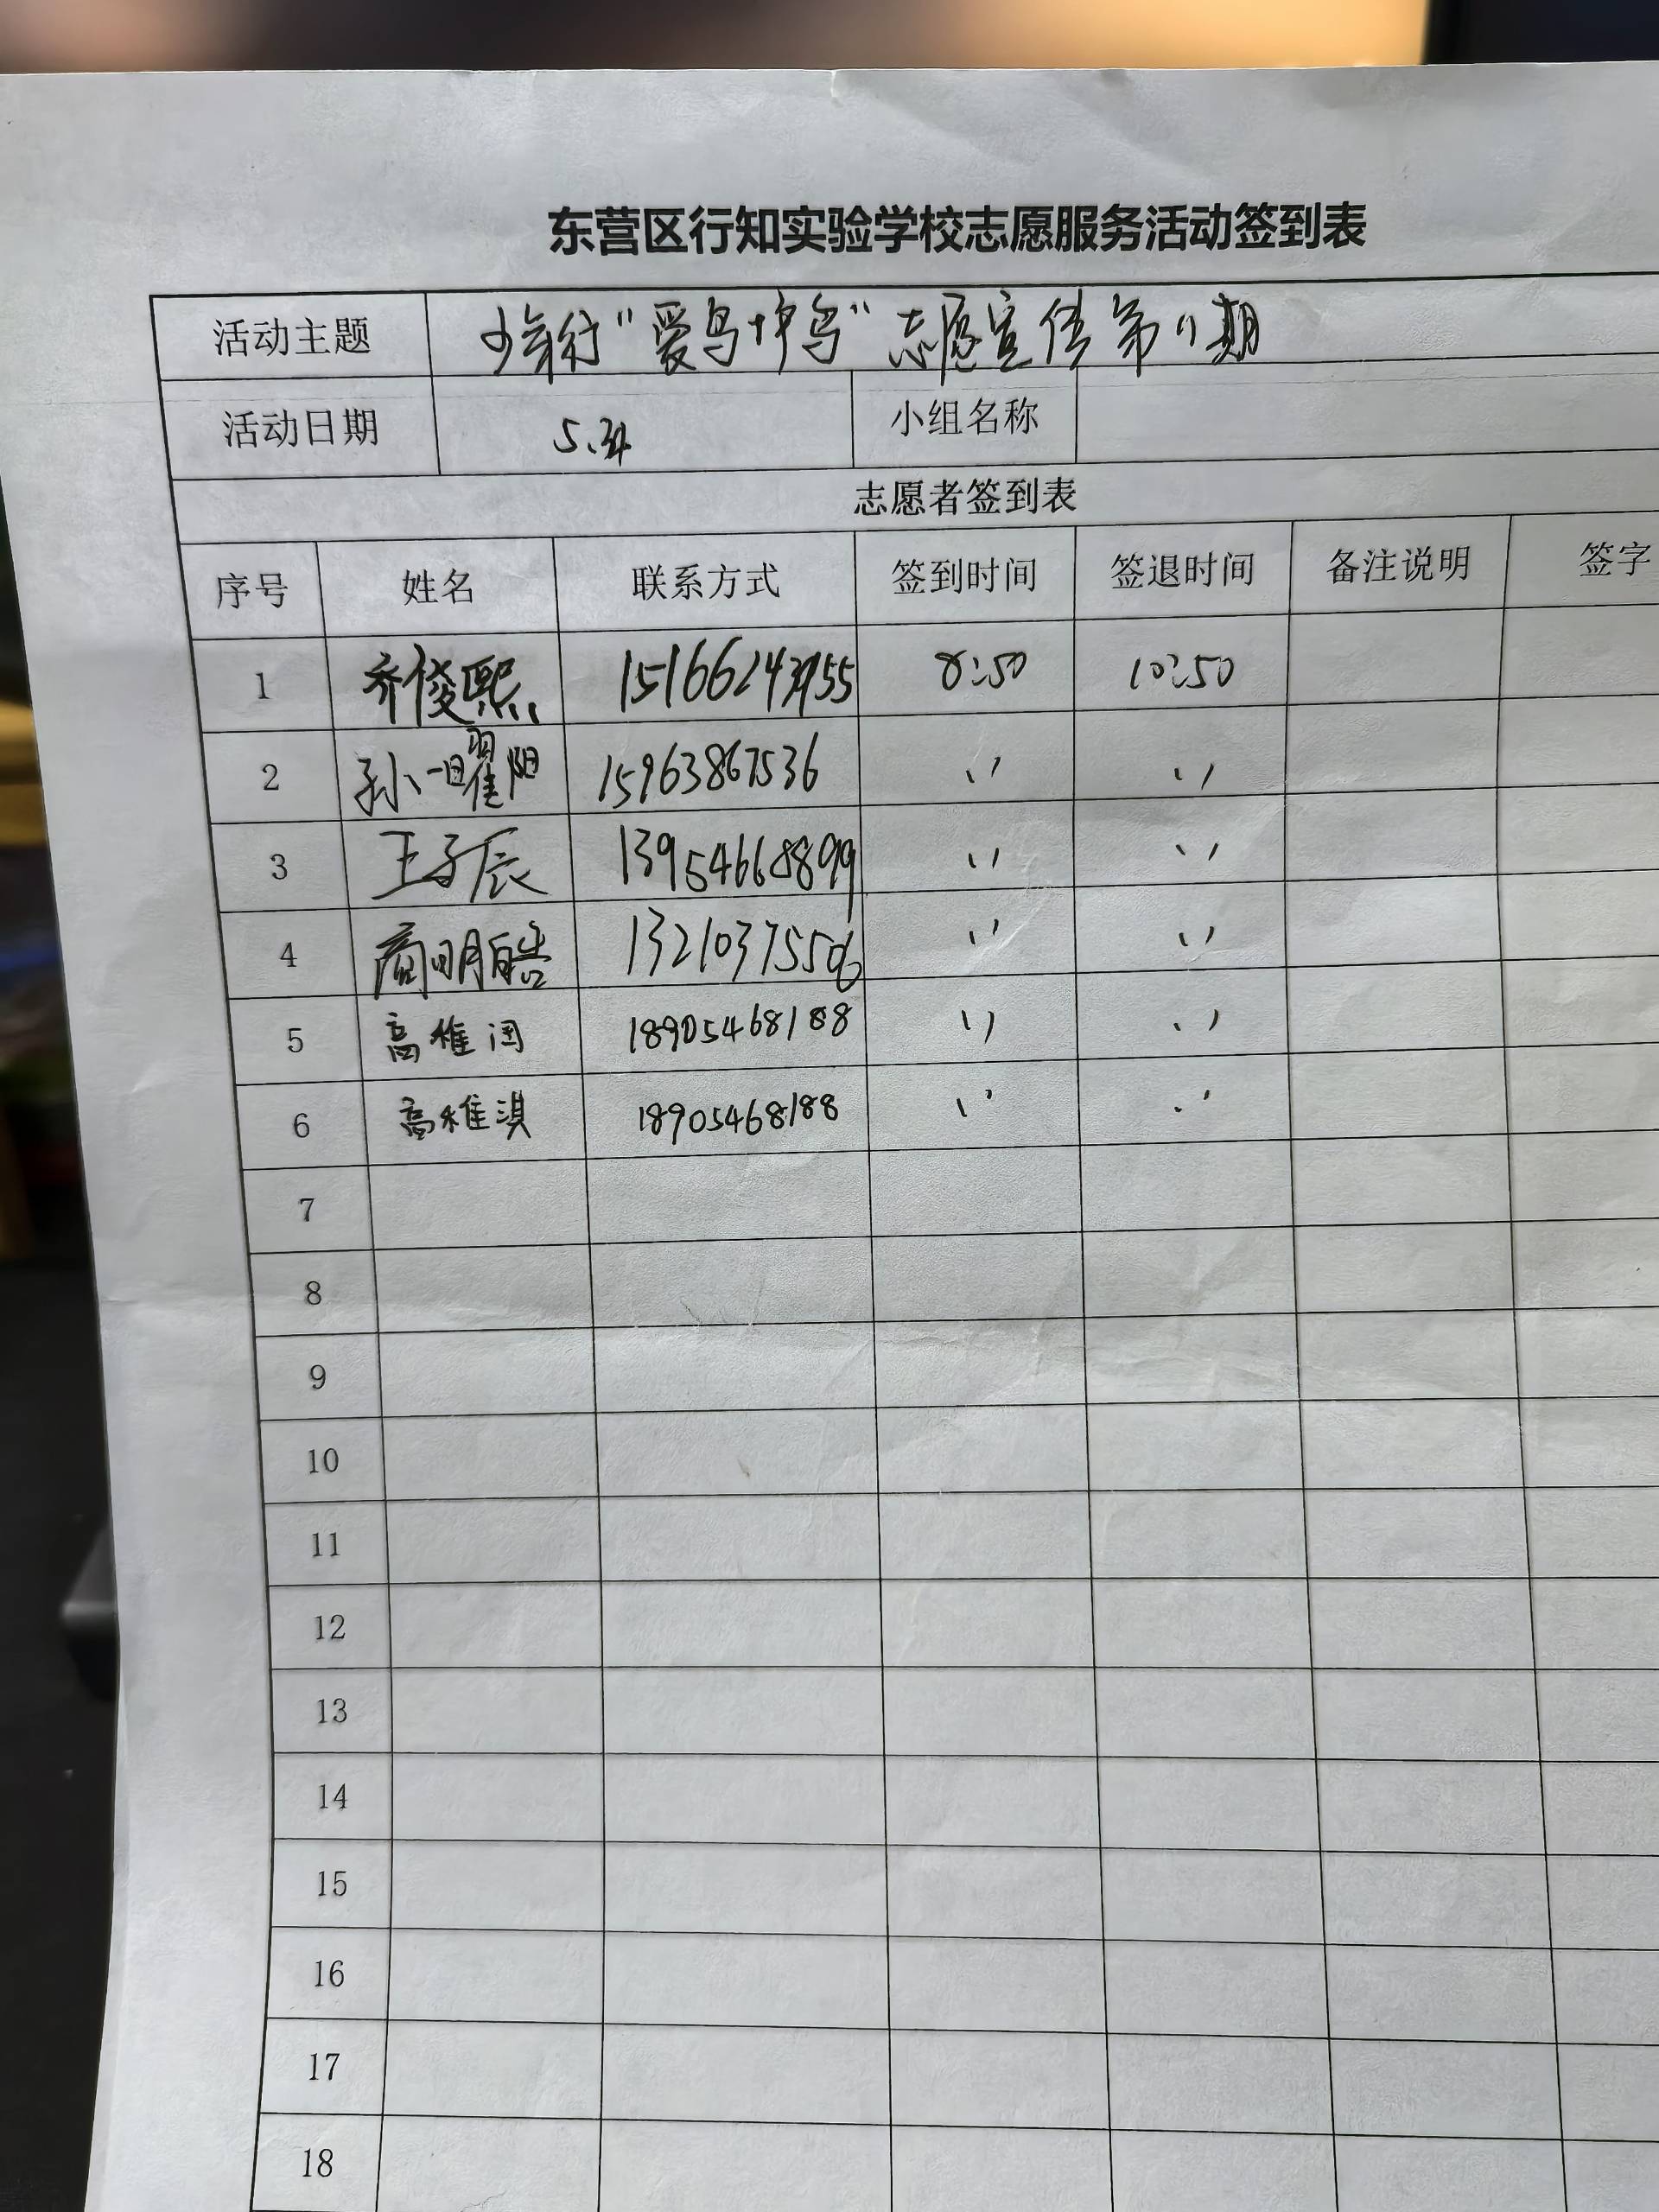 东营区行知实验学校志愿服务活动签到表
活动主题 少年行“爱鸟护鸟”志愿宣传第11期
活动日期 小组名称
志愿者签到表
序号 姓名 联系方式 签到时间 签退时间 备注说明 签字
1 齐俊熙 8:50 10:50
2 孙一曜阳 15963867536 〃 〃
3 王子辰 13954668899 〃 〃
4 商明皓 13210375506 〃 〃
5 高雅 18905468188 〃 〃
6 高雅淇 18905468188 〃 〃
7
8
9
10
11
12
13
14
15
16
17
18